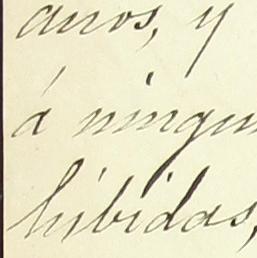 anos, y
á ningun
hibidas,